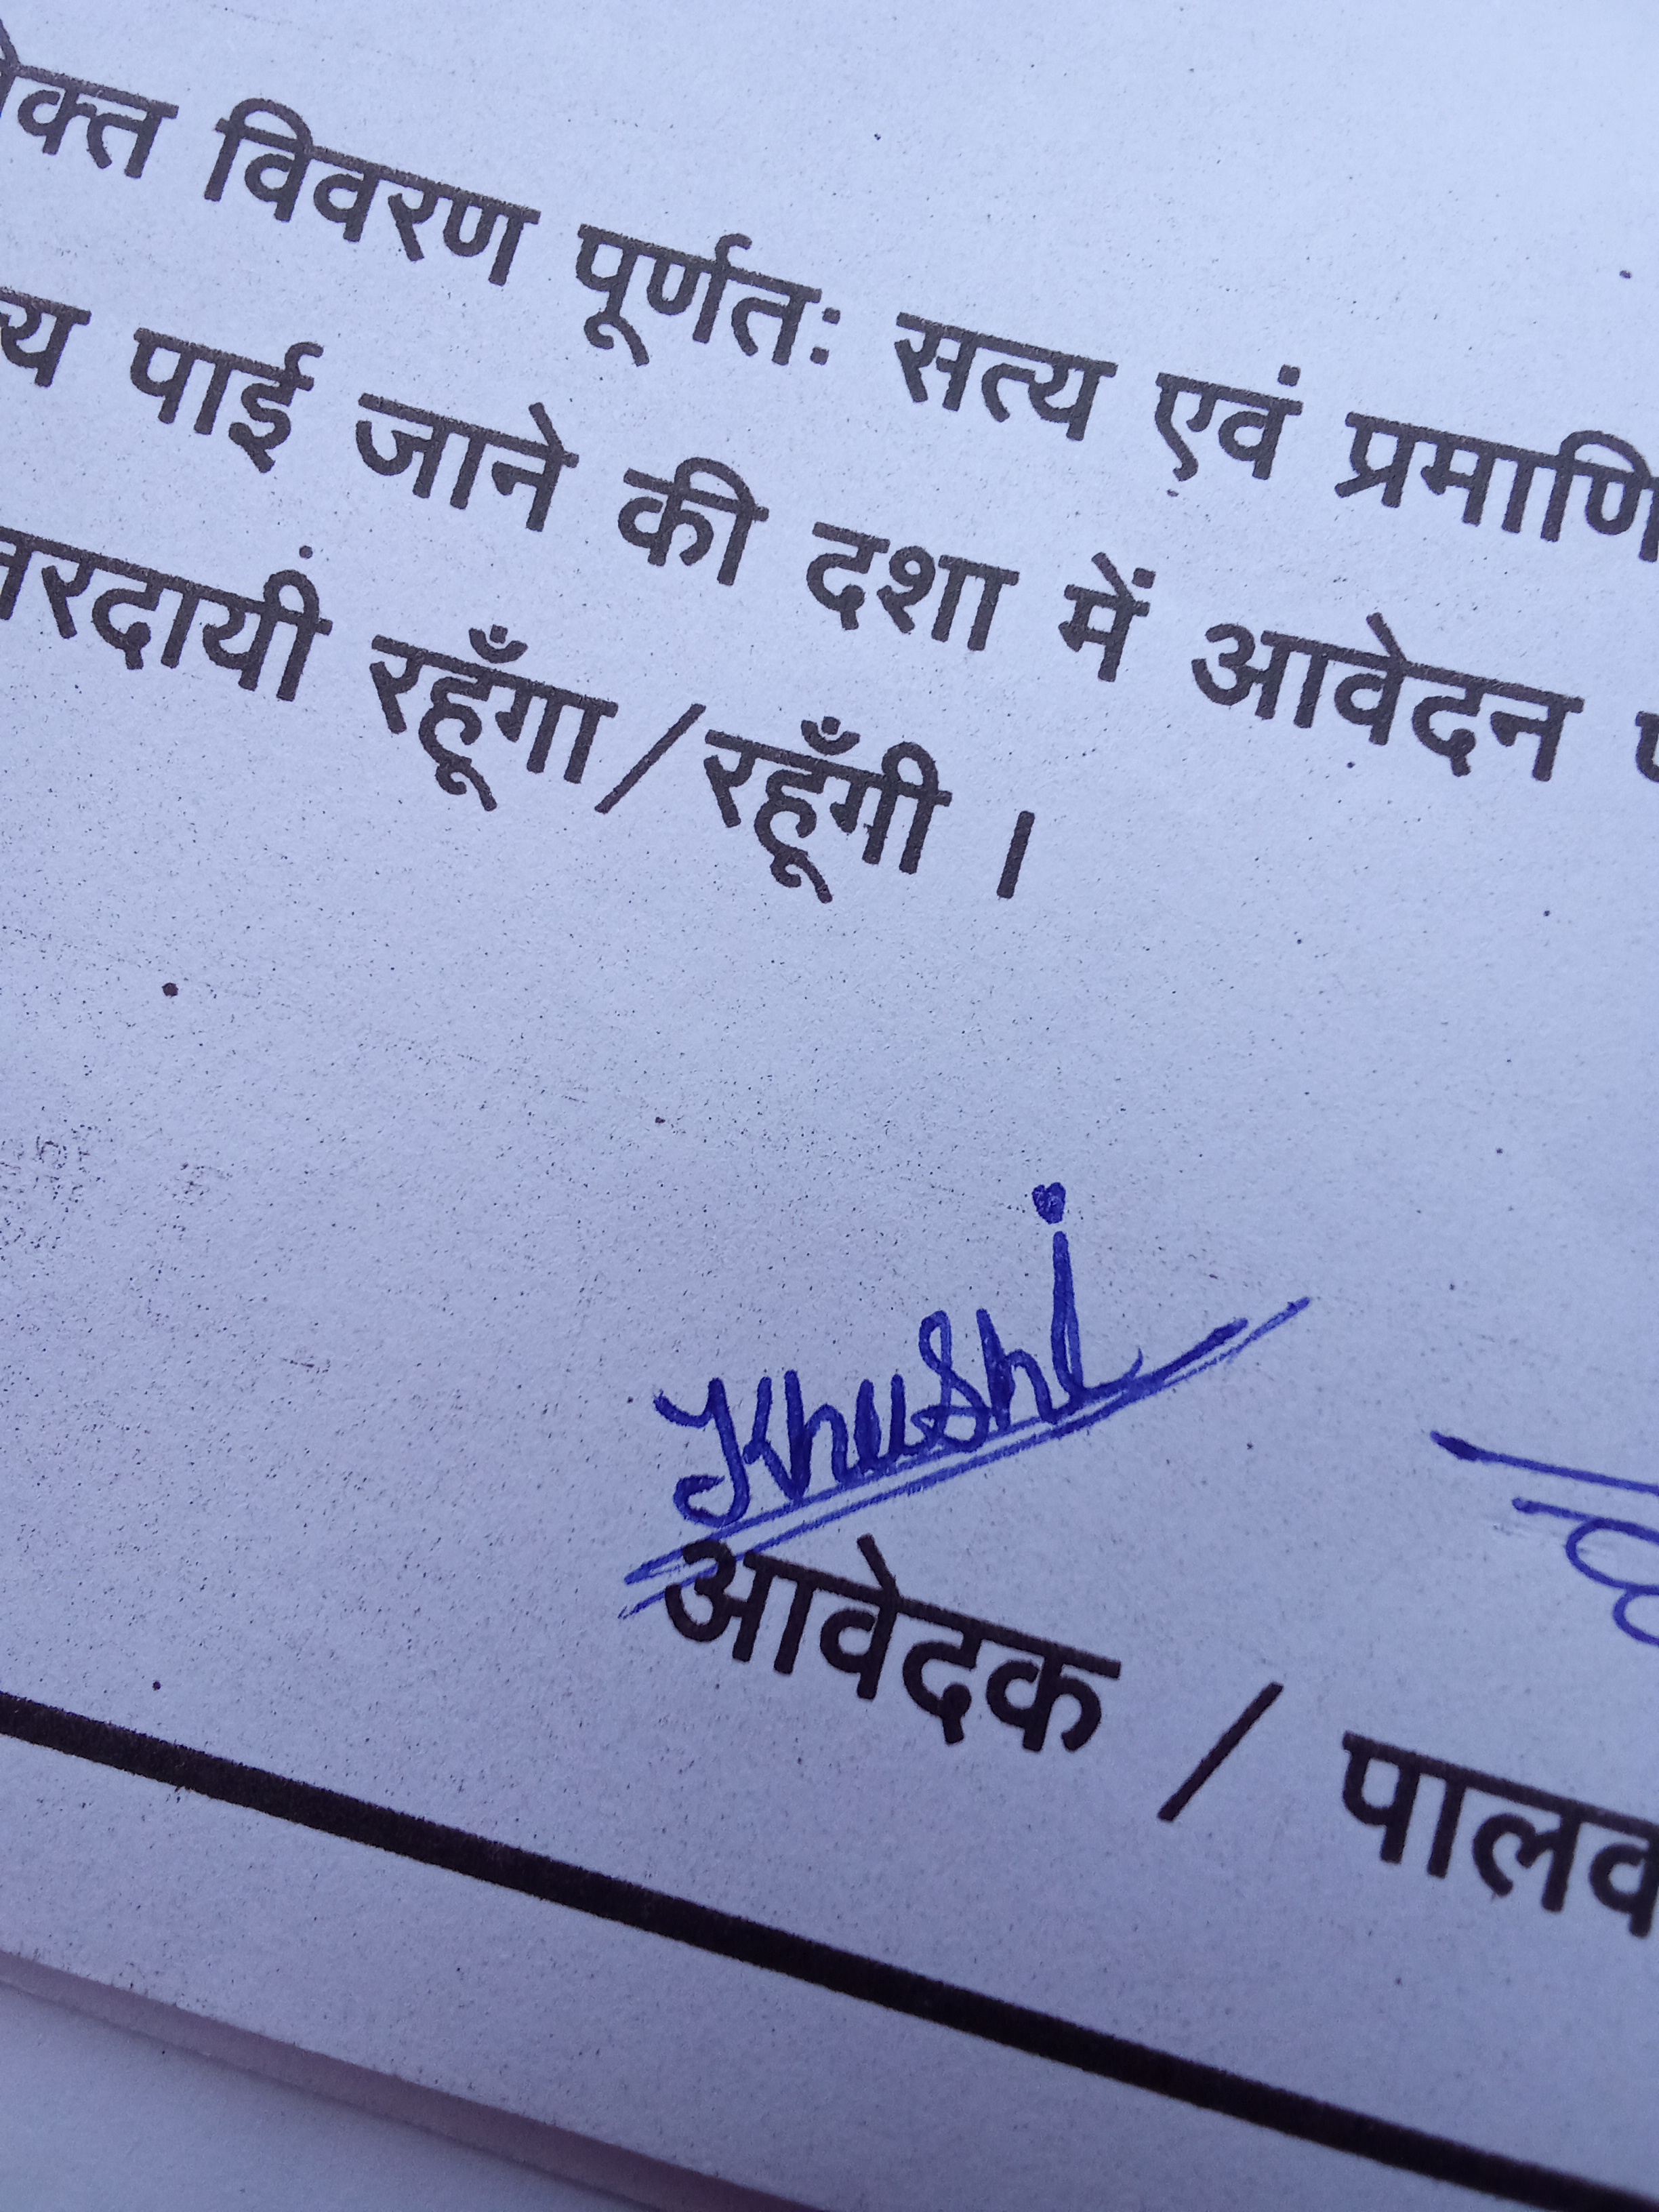 विवरण पूर्णतः सत्य एवं
पाई जाने की दशा में आवेदन
रहूँगा/रहूँगी ।
Khushi
आवेदक /